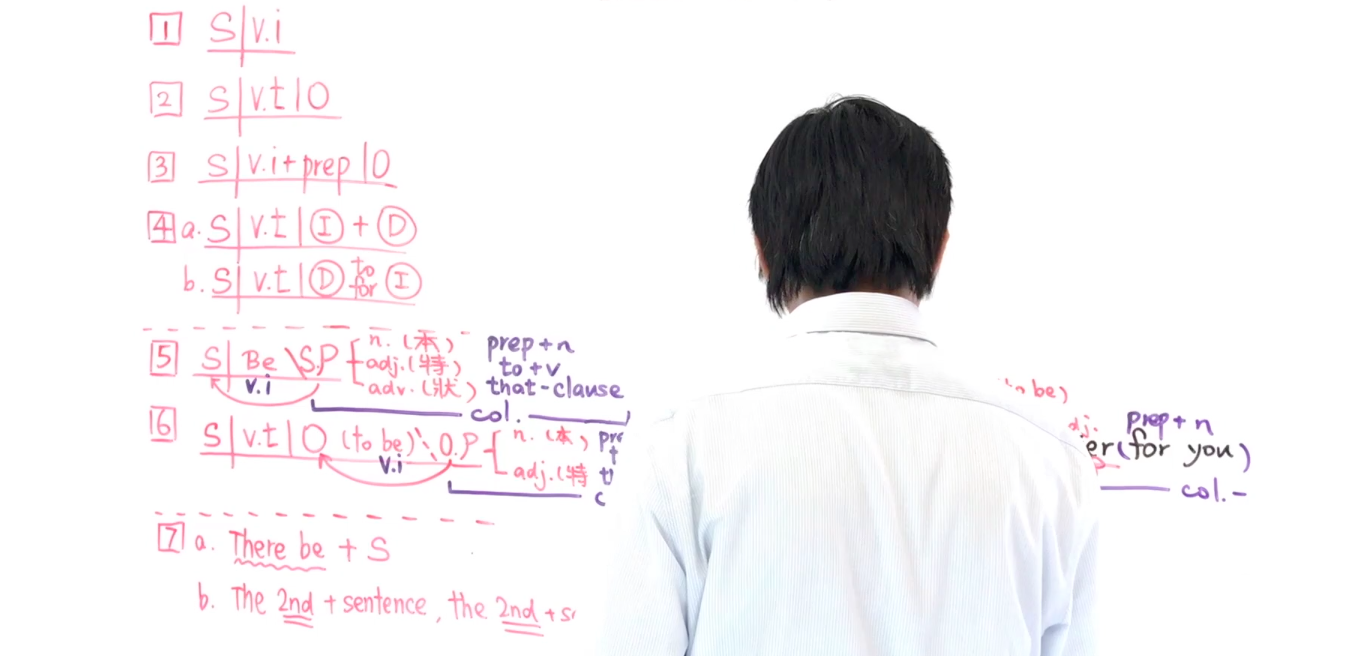 1 S | v.i
2 S | v.t | O
3 S | v.i + prep | O
4 a. S | v.t | I + D
b. S | v.t | D to for I
5 S | Be \ S.P n. (本) prep + n
v.i adj. (特) to + v
adv. (狀) that-clause
col.
6 S | v.t | O (to be) \ O.P n. (本)
v.i adj. (特
to be)
prep + n
(for you)
col.
7 a. There be + S
b. The 2nd + sentence, the 2nd +